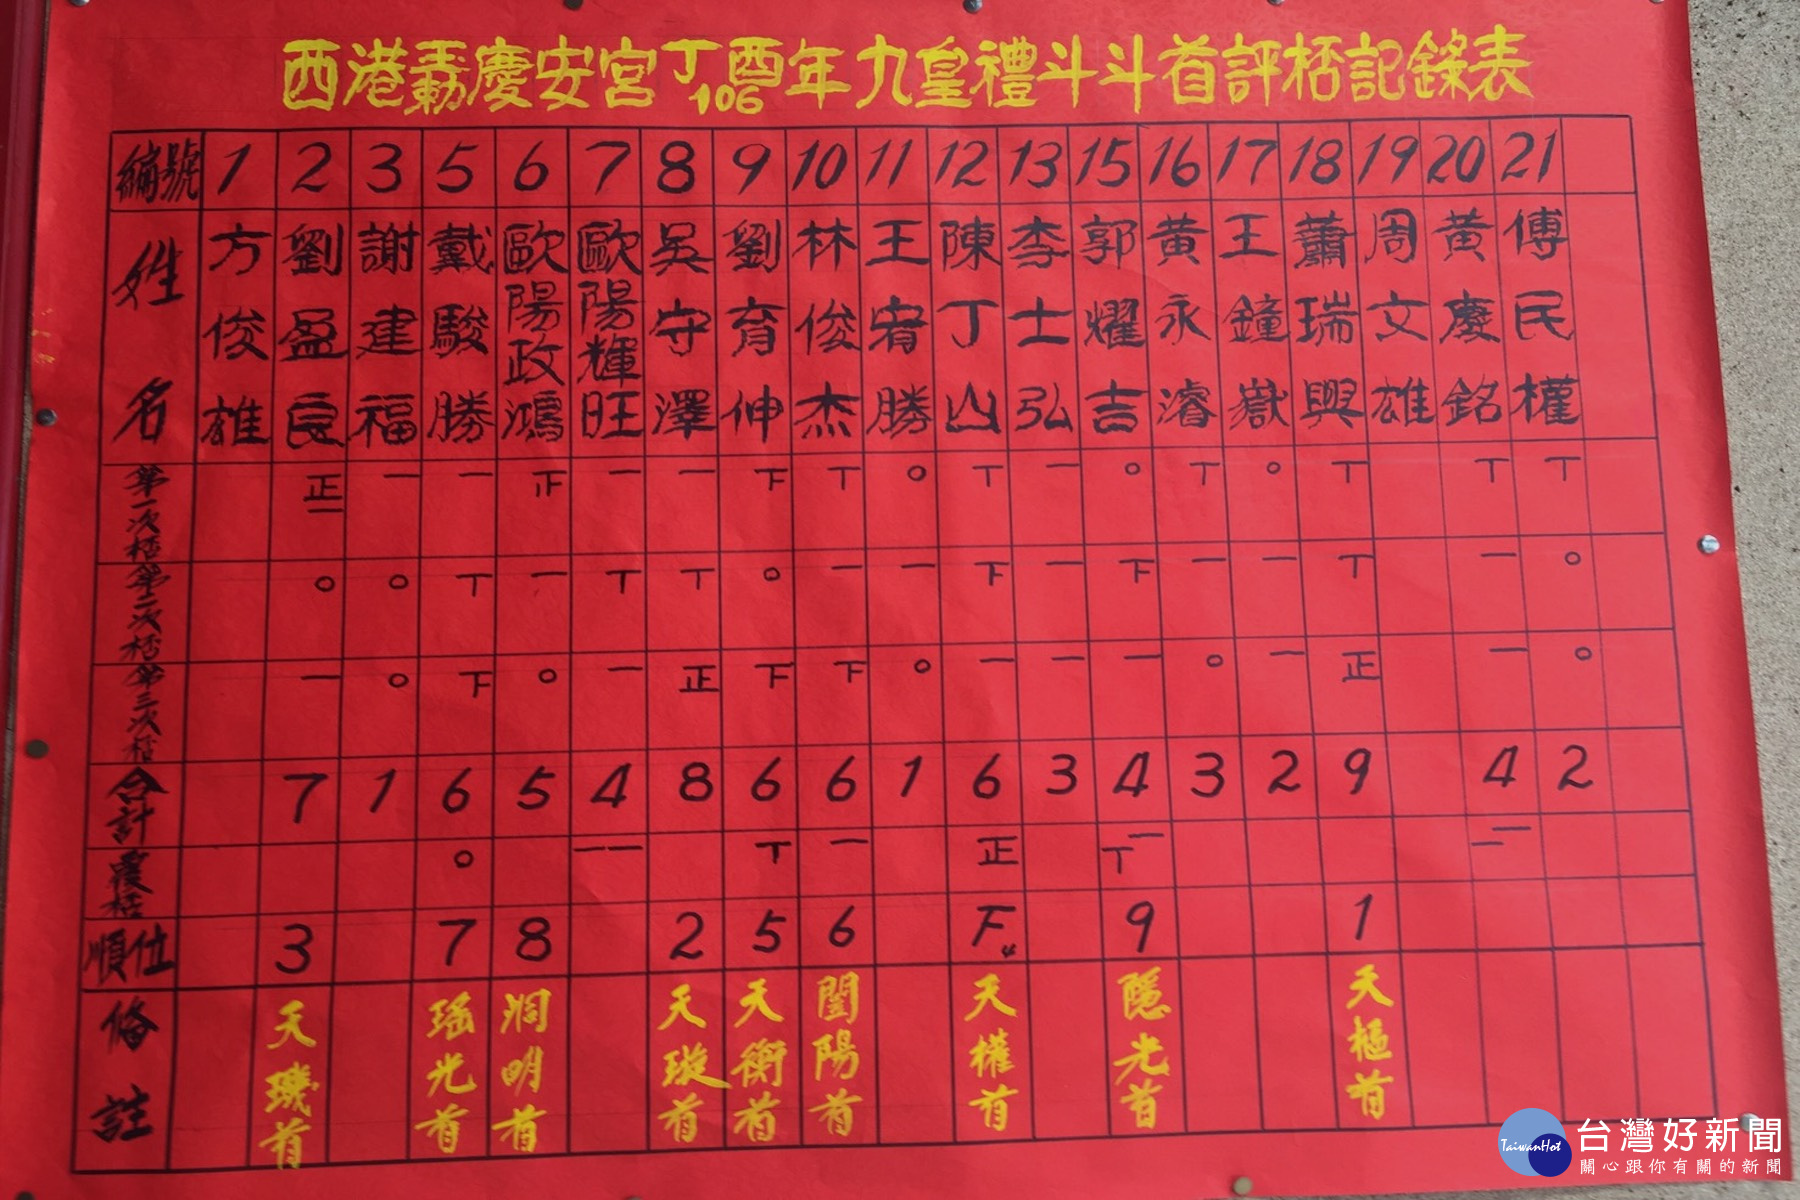 西港玉勅慶安宮丁酉106年九皇禮斗斗首評桮記錄表
編號 1 2 3 5 6 7 8 9 10 11 12 13 15 16 17 18 19 20 21
姓名 方俊雄 劉盈良 謝建福 戴駿勝 歐陽政鴻 歐陽輝旺 吳守澤 劉育伸 林俊杰 王宥勝 陳丁山 李士弘 郭耀吉 黃永濬 王鐘嶽 蕭瑞興 周文雄 黃慶銘 傅民權
第一次桮 正二 一 一 正 一 一 下 丅 ○ 丅 一 ○ 丅 ○ 丅 丅 丅
第二次桮 ○ ○ 丅 一 丅 丅 ○ 一 一 下 一 下 一 一 丅 一 ○
第三次桮 一 ○ 下 ○ 一 正 下 下 ○ 一 一 一 ○ 一 正 一 ○
合計 7 1 6 5 4 8 6 6 1 6 3 4 3 2 9 4 2
覆桮 ○ 一一 丅 一 正 丅一 一一
順位 3 7 8 2 5 6 下4 9 1
俻註 天璣首 瑤光首 洞明首 天璇首 天衡首 闓陽首 天權首 隱光首 天樞首
TaiwanHot
台灣好新聞
關心跟你有關的新聞